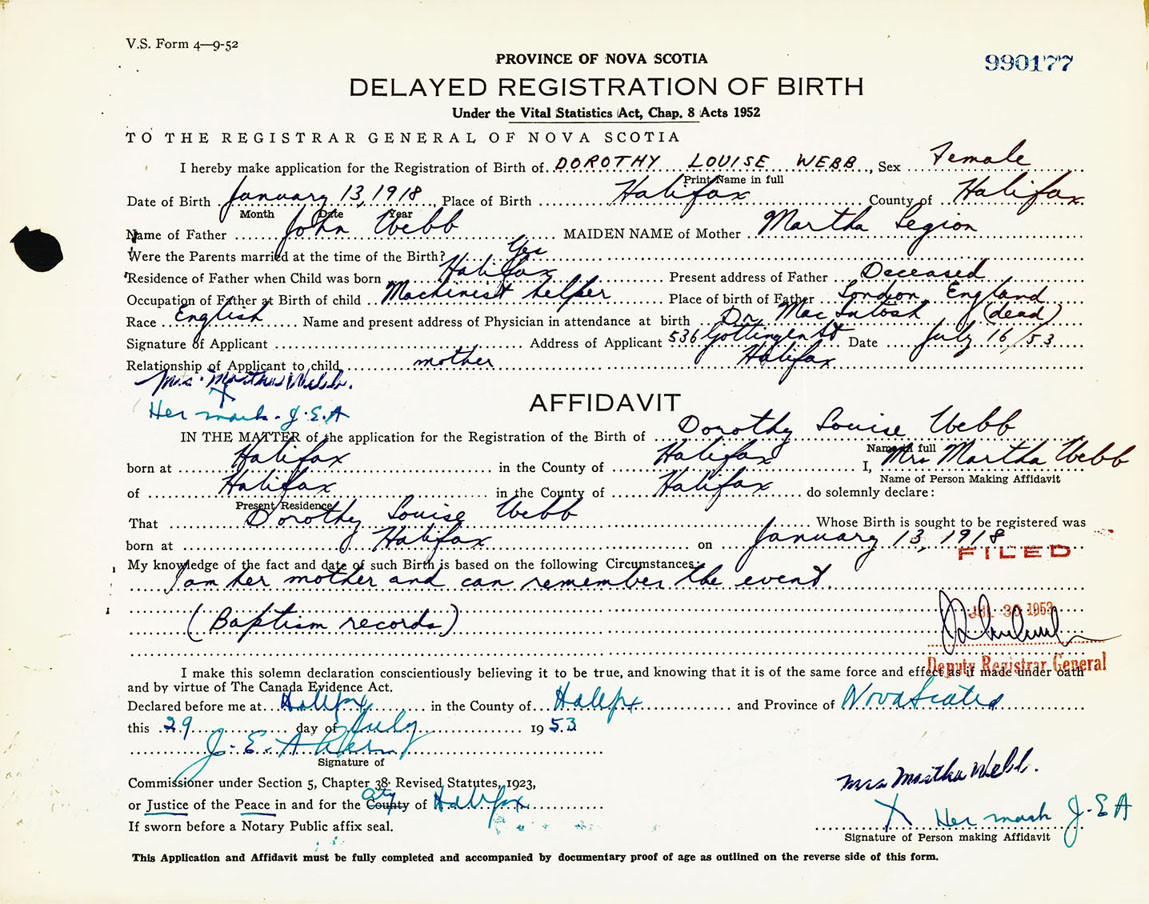 V.S. Form 4—9-52
PROVINCE OF NOVA SCOTIA
990177
DELAYED REGISTRATION OF BIRTH
Under the Vital Statistics Act, Chap. 8 Acts 1952
TO THE REGISTRAR GENERAL OF NOVA SCOTIA
I hereby make application for the Registration of Birth of DOROTHY LOUISE WEBB, Sex Female
Print Name in full
Date of Birth January 13, 1918, Place of Birth Halifax County of Halifax
Month Date Year
Name of Father John Webb MAIDEN NAME of Mother Martha Legion
Were the Parents married at the time of the Birth? Yes
Residence of Father when Child was born Halifax Present address of Father Deceased
Occupation of Father at Birth of child Machinist helper Place of birth of Father London, England
Race English Name and present address of Physician in attendance at birth Dr. MacIntosh (dead)
Signature of Applicant Address of Applicant 536 Gottingen St Date July 16/53
Halifax
Relationship of Applicant to child mother
Mrs. Martha Webb.
X
Her mark. J.E.A
AFFIDAVIT
IN THE MATTER of the application for the Registration of the Birth of Dorothy Louise Webb
Name in full
born at Halifax in the County of Halifax I, Mrs Martha Webb
Name of Person Making Affidavit
of Halifax in the County of Halifax do solemnly declare:
Present Residence
That Dorothy Louise Webb Whose Birth is sought to be registered was
born at Halifax on January 13, 1918
FILED
My knowledge of the fact and date of such Birth is based on the following Circumstances:
I am her mother and can remember the event
(Baptism records)
JUL 30 1953
Deputy Registrar General
I make this solemn declaration conscientiously believing it to be true, and knowing that it is of the same force and effect as if made under oath
and by virtue of The Canada Evidence Act.
Declared before me at Halifax in the County of Halifax and Province of Nova Scotia
this 29 day of July 1953
J. E. Ahern
Signature of
Commissioner under Section 5, Chapter 38 Revised Statutes, 1923,
or Justice of the Peace in and for the County City of Halifax
If sworn before a Notary Public affix seal.
Mrs Martha Webb.
X Her mark J.E A
Signature of Person making Affidavit
This Application and Affidavit must be fully completed and accompanied by documentary proof of age as outlined on the reverse side of this form.